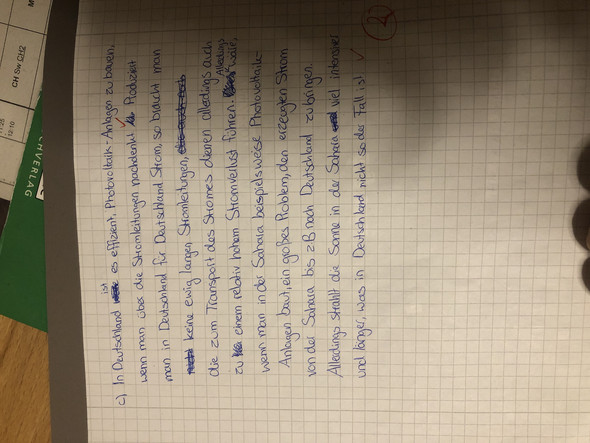 c) In Deutschland ist es effizient, Photovoltaik-Anlagen zu bauen,
wenn man über die Stromleitungen nachdenkt. Produziert
man in Deutschland für Deutschland Strom, so braucht man
keine ewig langen Stromleitungen,
die zum Transport des Stromes dienen allerdings auch
zu einem relativ hohem Stromverlust führen. Allerdings wäre,
wenn man in der Sahara beispielsweise Photovoltaik-
Anlagen baut, ein großes Problem, den erzeugten Strom
von der Sahara bis z.B nach Deutschland zu bringen.
Allerdings strahlt die Sonne in der Sahara viel intensiver
und länger, was in Deutschland nicht so der Fall ist.
2
CH Sw CH2
11:25
12:10
HVERLAG